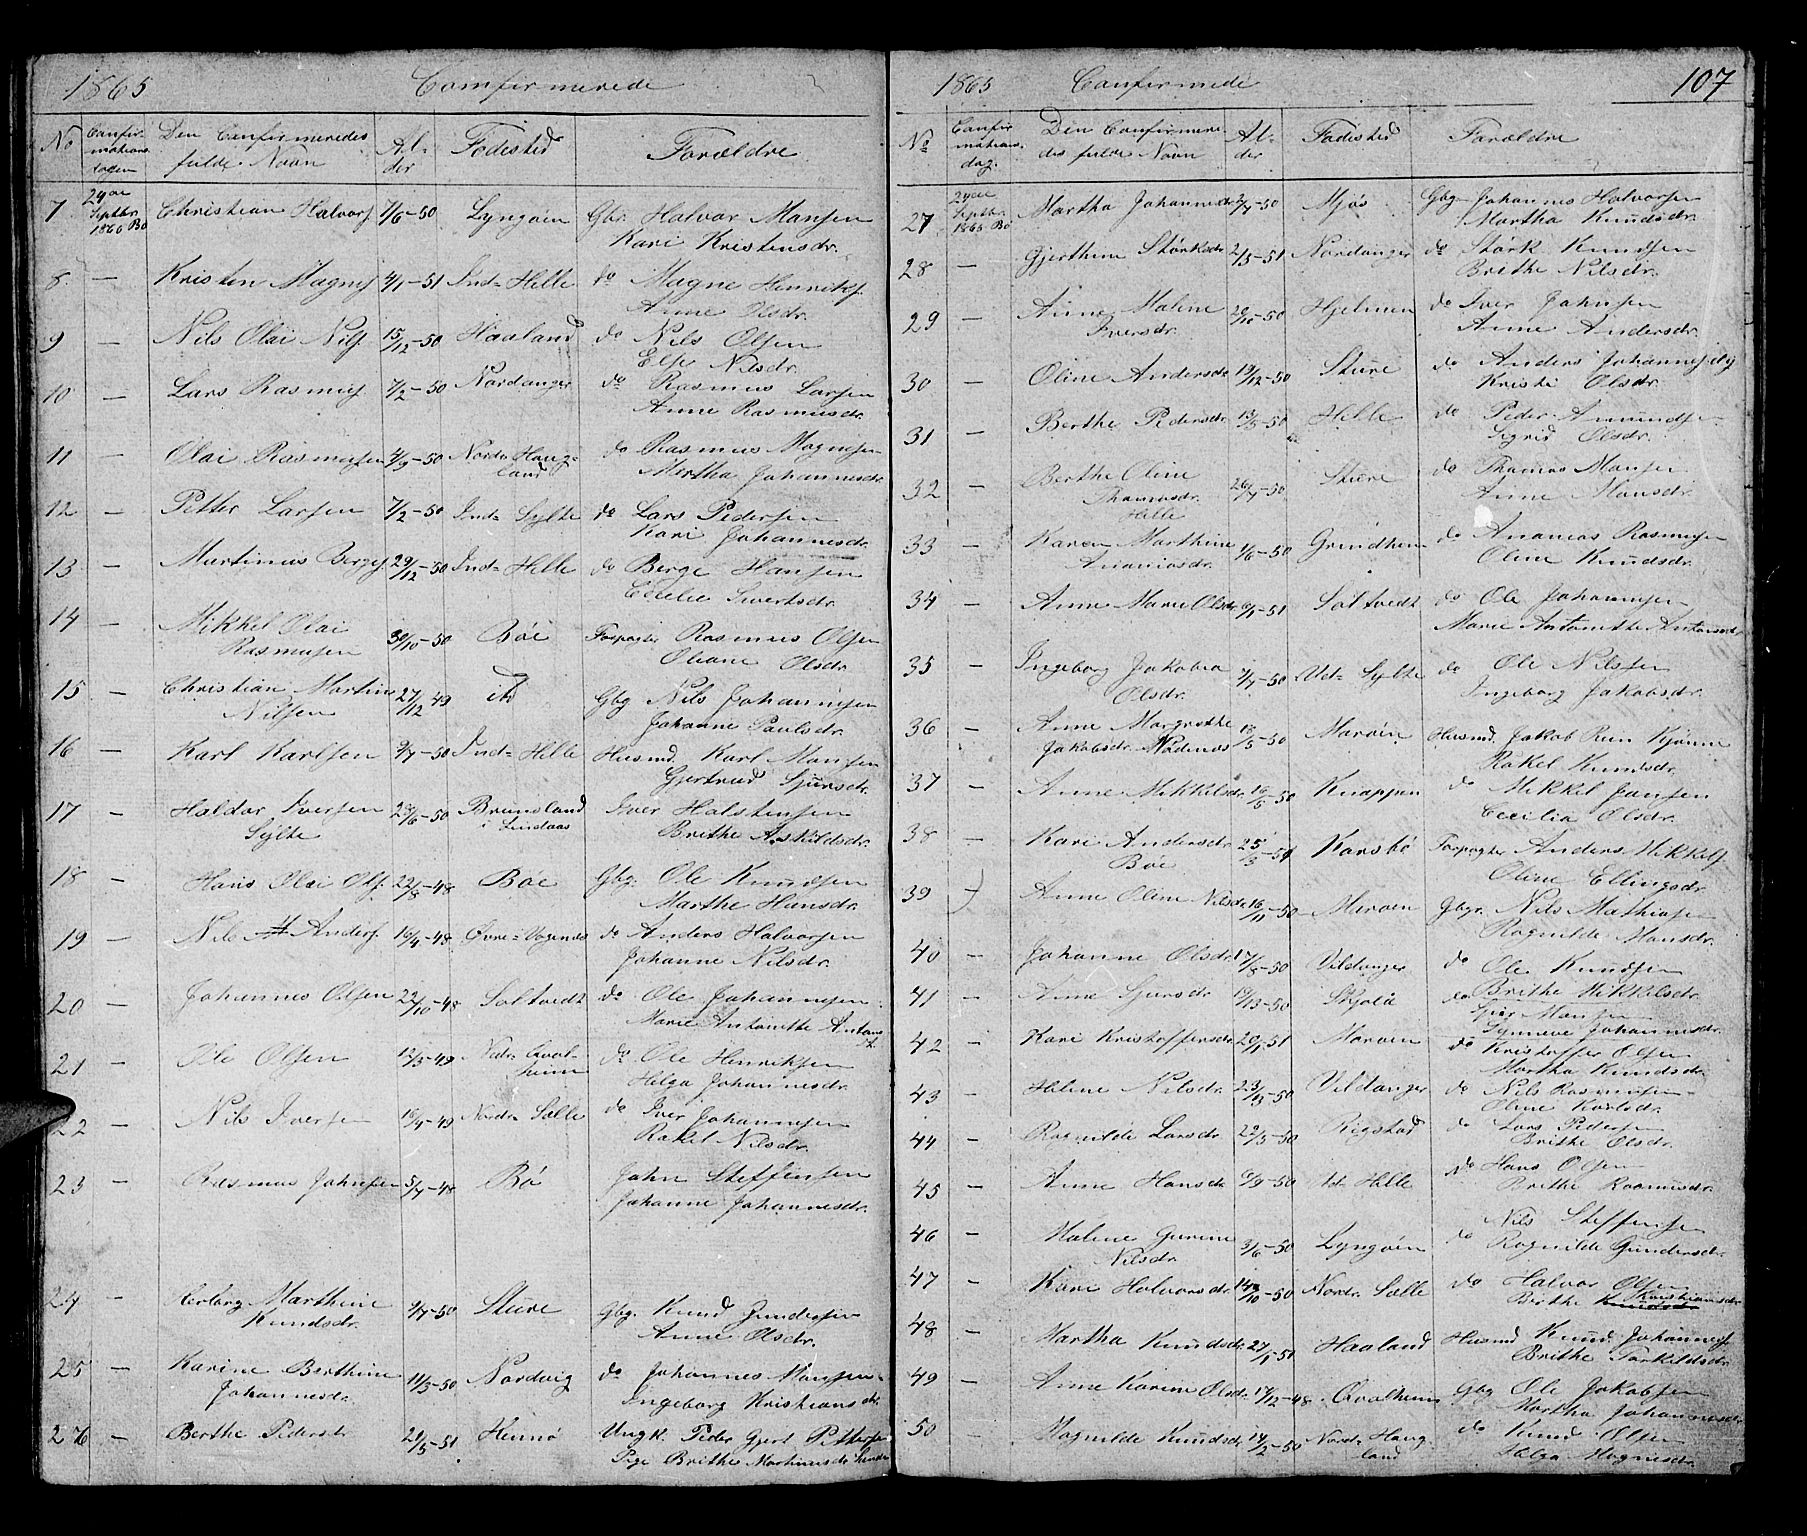 1865 Comfirmerede
No Confir-mations dagen Den Confirmeredes fulde Navn Al-der Fødested Forældre
7 24de Septbr 1865 Bø Christian Halvors. 7/6-50 Lyngøen Gbr. Halvor Mansen
Kari Kristensdr.
8 — Kristen Magns. 4/1-51 Ind: Helle do Magne Henriks.
Anne Olsdr.
9 — Nils Olai Nils. 15/12-50 Haaland do Nils Olsen
Else Nilsdr.
10 — Lars Rasmus. 7/2-50 Nordanger do Rasmus Larsen
Anne Rasmusdr.
11 — Olai Rasmusen 4/9-50 Nordr Haug-land do Rasmus Magnesen
Martha Johannesdr.
12 — Petter Larsen 7/2-50 Ind: Sylte do Lars Pedersen
Kari Johannesdr.
13 — Martinus Berges. 29/12-50 Ind: Helle do Berge Hansen
Cecilie Sivertsdr.
14 — Mikkel Olai Rasmusen 30/10-50 Bøe Forpagter Rasmus Olsen
Oliane Olsdr.
15 — Christian Martin Nilsen 27/12 49 itd Gbg Nils Johannesen
Johanne Paulsdr.
16 — Karl Karlsen 9/7-50 Ind: Helle Husmd. Karl Mansen
Gjertrud Sjursdr.
17 — Haldor Iversen Sylte 23/6-50 Brunsland i Lindaas Iver Halstensen
Brithe Askildsdr.
18 — Hans Olai Ols. 22/8-48 Bøe Gbg. Ole Knudsen
Marthe Hansdr.
19 — Nils Anders. 16/4-48 Øvre- do Anders Halvorsen
Johanne Nilsdr.
20 — Johannes Olsen 22/10-48 Soltvedt do Ole Johannesen
Marie Antonette Antons dr.
21 — Ole Olsen 12/3-49 Nedr Qval-heim do Ole Henriksen
Helga Johannesdr.
22 — Nils Iversen 10/4-49 Nordr Sælle do Iver Johannesen
Rakel Nilsdr.
23 — Rasmus Johnsen 5/7-48 Bø John Steffensen
Johanne Johannesdr.
24 — Herborg Marthine Knudsdr. 9/7-50 Sture Gbg. Knud Gundersen
Anne Olsdr.
25 — Karine Berthine Johannesdr. 11/3-50 Nordvig do Johannes Mansen
Ingeborg Kristiansdr.
26 — Berthe Pedersdr 21/5-51 Hennø Ungk. Peder Gjert Pettersen
Pige Brithe Martinusdr
1865 Confirmede 107
No Confirmations dag. Den Confirmere des fulde Navn Al-der Fødested Forældre
27 24de Septbr 1865 Bø Martha Johannesdr 2/7-50 Mjøs Gbg Johannes Halvorsen
Martha Knudsdr.
28 — Gjerthine Størksdr 2/5-51 Nordanger do Størk Knudsen
Brithe Nilsdr.
29 — Anne Maline Iversdr. 20/10-50 Hjelmen do Iver Johnsen
Anne Andersdr.
30 — Oline Andersdr 19/12-50 Sture do Anders Johannes.
Kristi Olsdr.
31 — Berthe Pedersdr. 13/5-50 Helle do Peder Amundsen
Sigrid Olsdr.
32 — Berthe Oline Thomasdr. Helle 26/7-50 Sture do Thomas Mansen
Anne Mansdr.
33 — Karen Marthine Ananiasdr. 1/6-50 Grindhem do Ananias Rasmusen
Oline Knudsdr.
34 — Anne Marie Olsdr 6/1-51 Soltvedt do Ole Johannesen
Marie Antonette Antonsdr
35 — Ingeborg Jakobia Olsdr. 7/7-50 Ud: Sylte do Ole Nilsen
Ingeborg Jakobsdr.
36 — Anne Margrethe Jakobsdr. 13/5-50 Marøen Husmd. Jakob
Rakel Knudsdr.
37 — Anne Mikkelsdr. 16/5-50 Knappen do Mikkel Jansen
Cecilia Olsdr.
38 — Kari Andersdr. Bøe 25/3-51 Karsbø Forpagter Anders Mikkels.
Oline Ellingsdr.
39 — Anne Oline Nilsdr. 16/11-50 Marøen Gbgr. Nils Mathiasen
Ragnilde Mansdr.
40 — Johanne Olsdr. 17/8-50 Vildanger do Ole Knudsen
Brithe Mikkelsdr.
41 — Anne Sjursdr 50 Skjolå do Sjur Mansen
Synneve Johannesdr.
42 — Kari Kristoffersdr. 20/1-51 Marøen do Kristoffer Olsen
Martha Knudsdr.
43 — Helene Nilsdr. 50 Vildanger do Nils Rasmusen
Oline Karlsdr.
44 — Ragnilde Larsdr. 22/3-50 Rigstad do Lars Pedersen
Brithe Olsdr.
45 — Anne Hansdr. 6/9-50 Ud: Helle do Hans Olsen
Brithe Rasmusdr.
46 — Malene Gurine Nilsdr. 3/6-50 Lyngøen do Nils Steffensen
Ragnilde Gundersdr.
47 — Kari Halvorsdr. 14/10-50 Nordr. Sælle do Halvor Olsen
Brithe Kristiansdr
48 — Martha Knudsdr. 27/1-51 Haaland Husmd Knud Johannes.
Brithe Torkildsdr.
49 — Anne Karine Olsdr. 17/12-48 Qvalheim Gbg Ole Jakobsen
Martha Johannesdr
50 — Magnilde Knudsdr. 14/2-50 Nordr Haug-land do Knud Olsen
Helga Magnesdr.